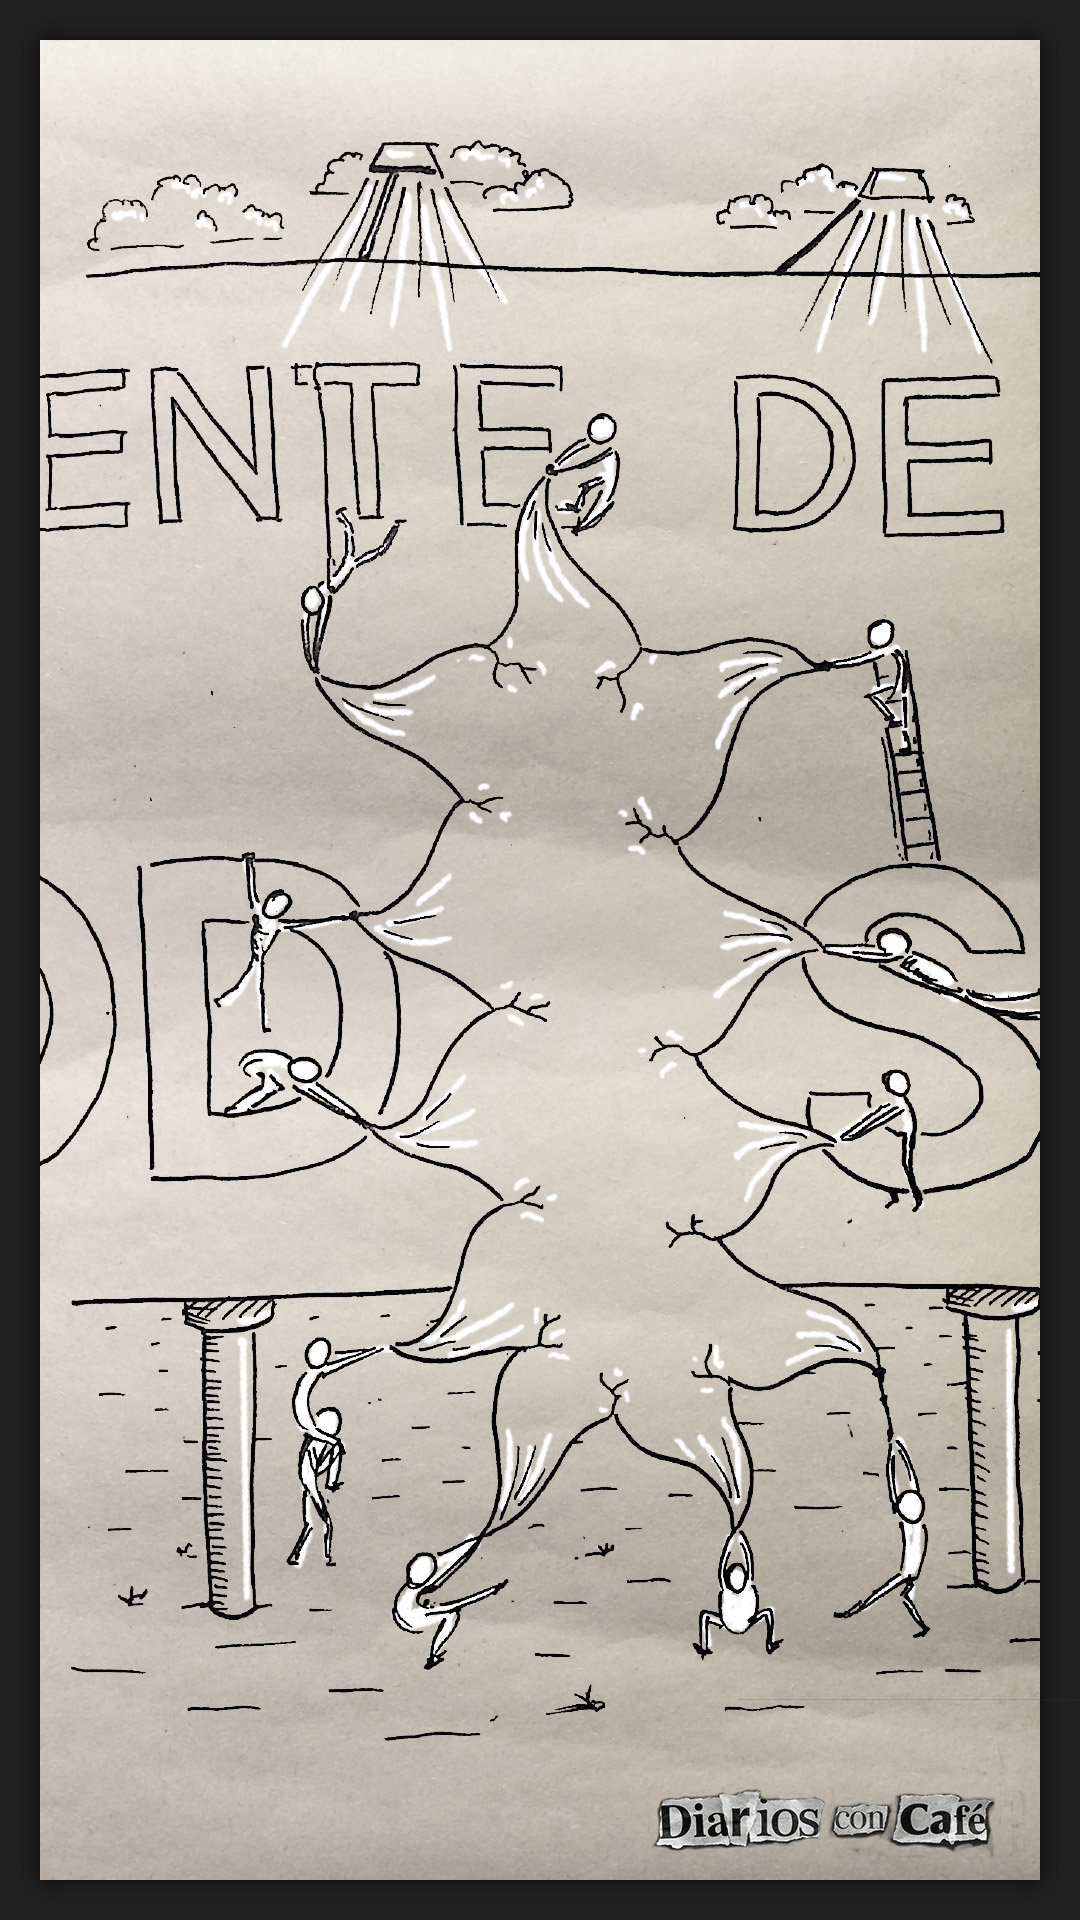 ENTE DE
ODOS
Diarios con Café